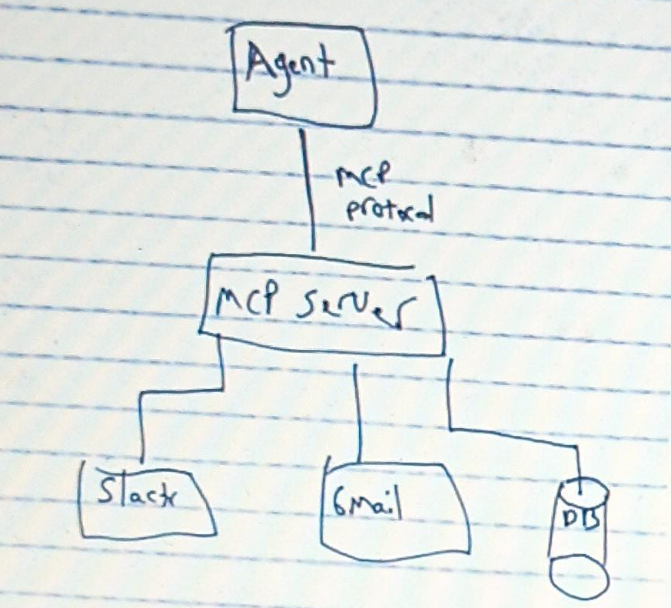 Agent
MCP
protocol
MCP Server
Slack
GMail
DB